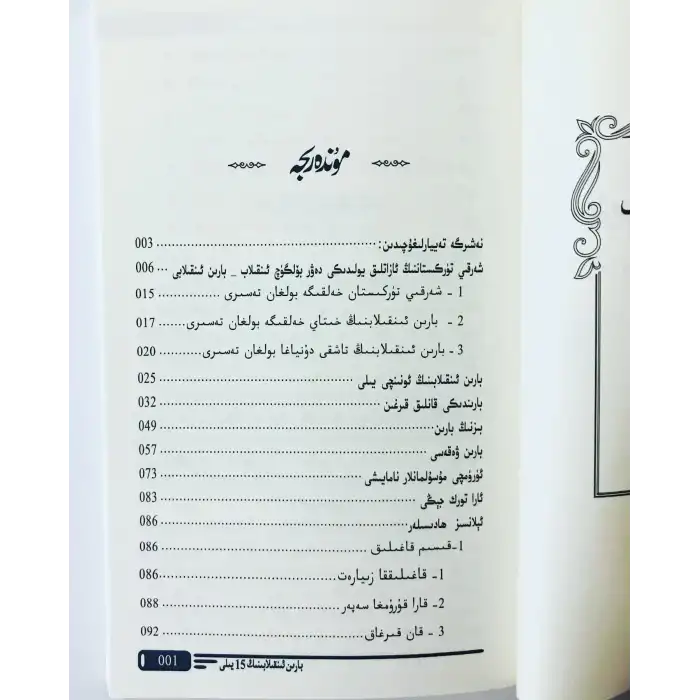 مۇندەرىجە
نەشرگە تەييارلىغۇچىدىن: ........ 003
شەرقىي تۈركىستاننىڭ ئازاتلىق يولىدىكى دەۋر بۆلگۈچ ئىنقىلاب _ بارىن ئىنقىلابى ... 006
1 - شەرقىي تۈركىستان خەلقىگە بولغان تەسىرى ........ 015
2 - بارىن ئىنقىلابىنىڭ خىتاي خەلقىگە بولغان تەسىرى ....... 017
3 - بارىن ئىنقىلابىنىڭ تاشقى دۇنياغا بولغان تەسىرى ........ 020
بارىن ئىنقىلابىنىڭ ئونىنچى يىلى ........ 025
بارىندىكى قانلىق قىرغىن ........ 032
بىزنىڭ بارىن ........ 049
بارىن ۋەقەسى ........ 057
ئۈرۈمچى مۇسۇلمانلار نامايىشى ........ 073
ئارا تۈرك جېڭى ........ 083
ئېلانسىز ھادىسىلەر ........ 086
1-قىسىم قاغىلىق ........ 086
1- قاغىلىققا زىيارەت ........ 086
2- قارا قۇرۇمغا سەپەر ........ 088
3 - قان قىرغاق ........ 092
بارىن ئىنقىلابىنىڭ 15 يىلى
001